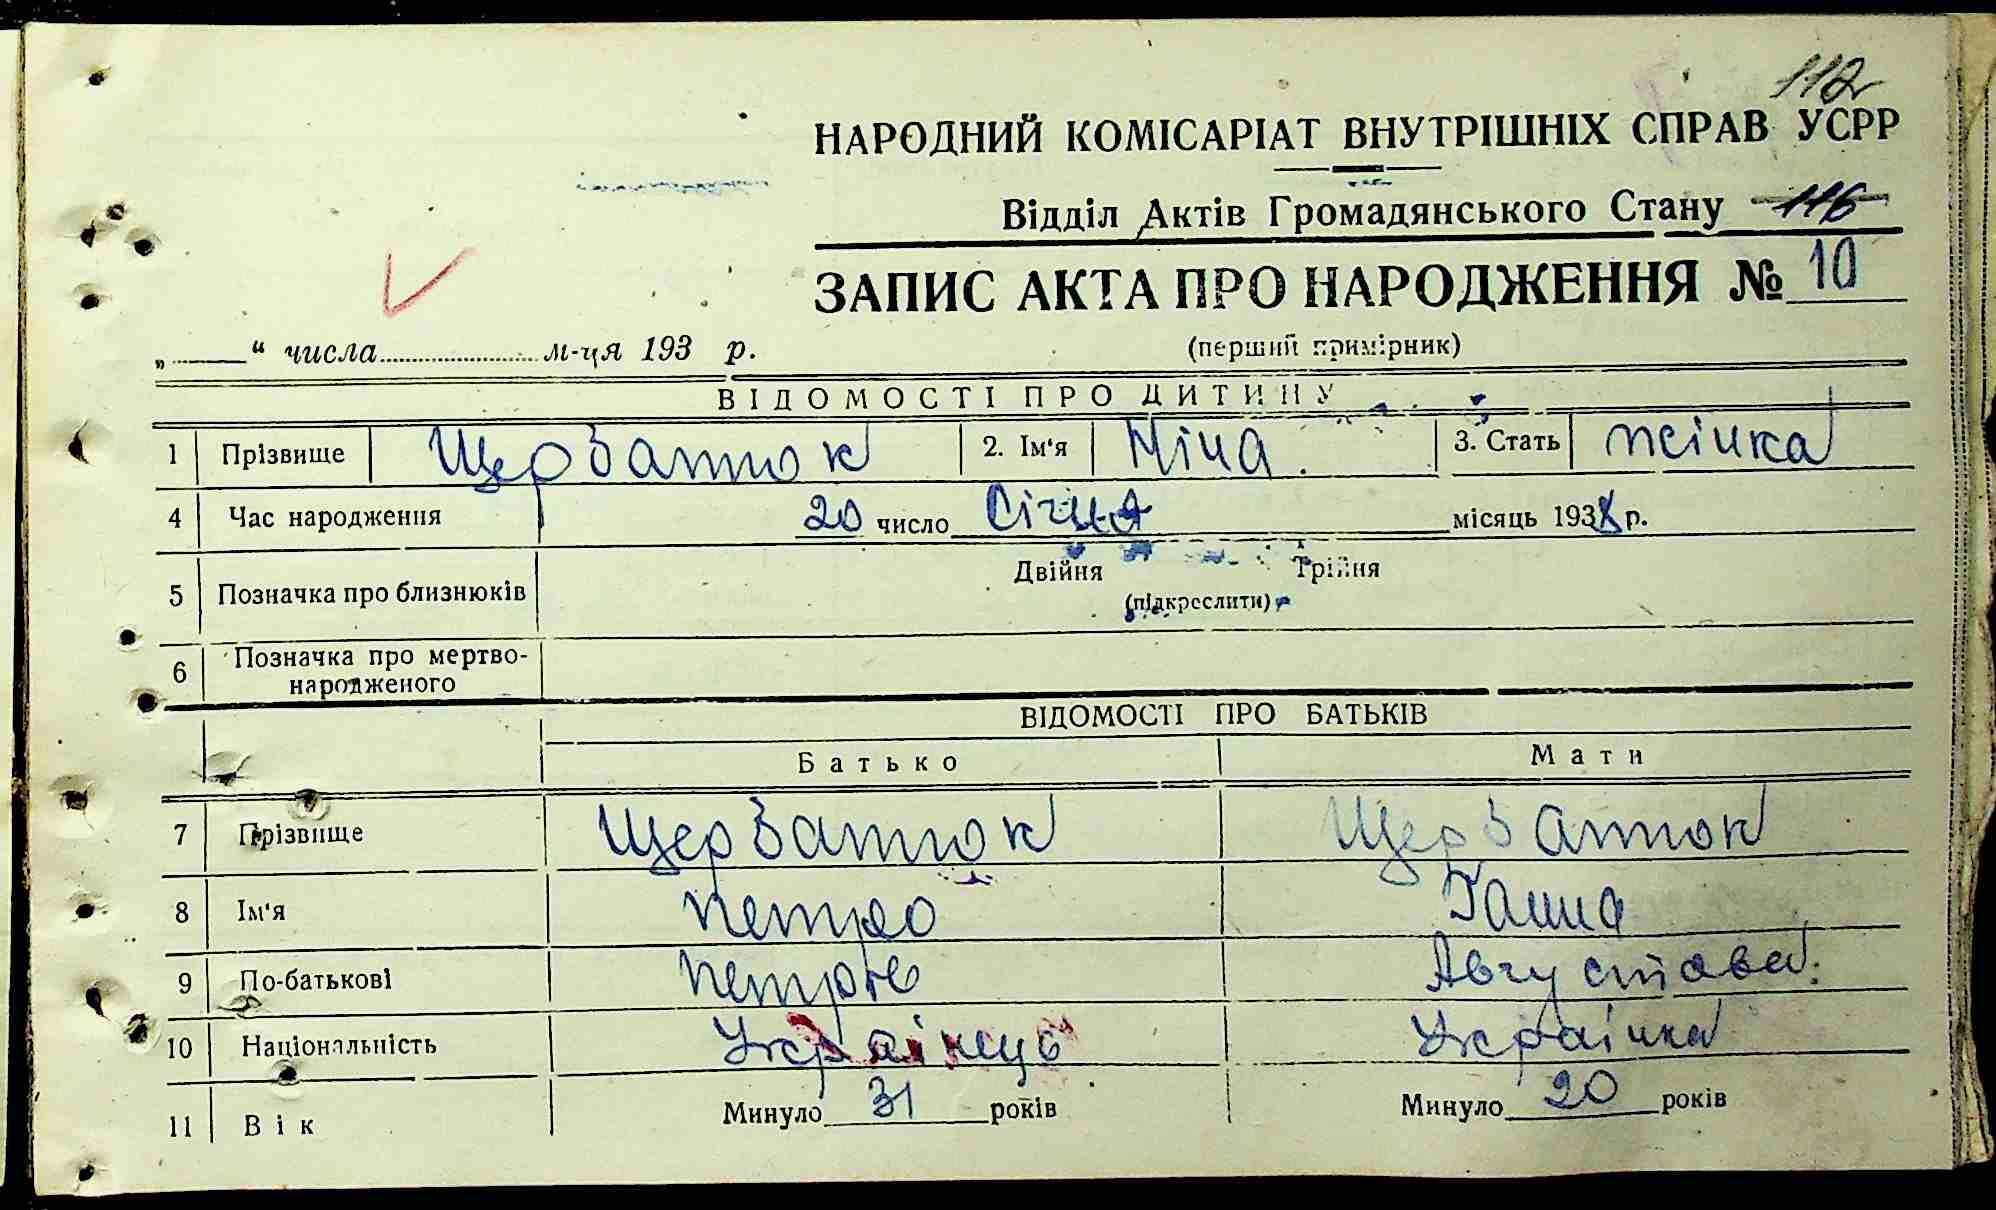 112
НАРОДНИЙ КОМІСАРІАТ ВНУТРІШНІХ СПРАВ УСРР
Відділ Актів Громадянського Стану 116
ЗАПИС АКТА ПРО НАРОДЖЕННЯ № 10
„ “ числа м-ця 193 р.
(перший примірник)
ВІДОМОСТІ ПРО ДИТИНУ
1 Прізвище Щербатюк 2. Ім'я Ніна. 3. Стать жінка
4 Час народження 20 число Січня місяць 1938 р.
5 Позначка про близнюків Двійня Трійня
(підкреслити)
6 Позначка про мертво-
народженого
ВІДОМОСТІ ПРО БАТЬКІВ
Батько Мати
7 Прізвище Щербатюк Щербатюк
8 Ім'я Петро Ганна
9 По-батькові Петров Августова.
10 Національність Українець Українка
11 Вік Минуло 31 років Минуло 20 років